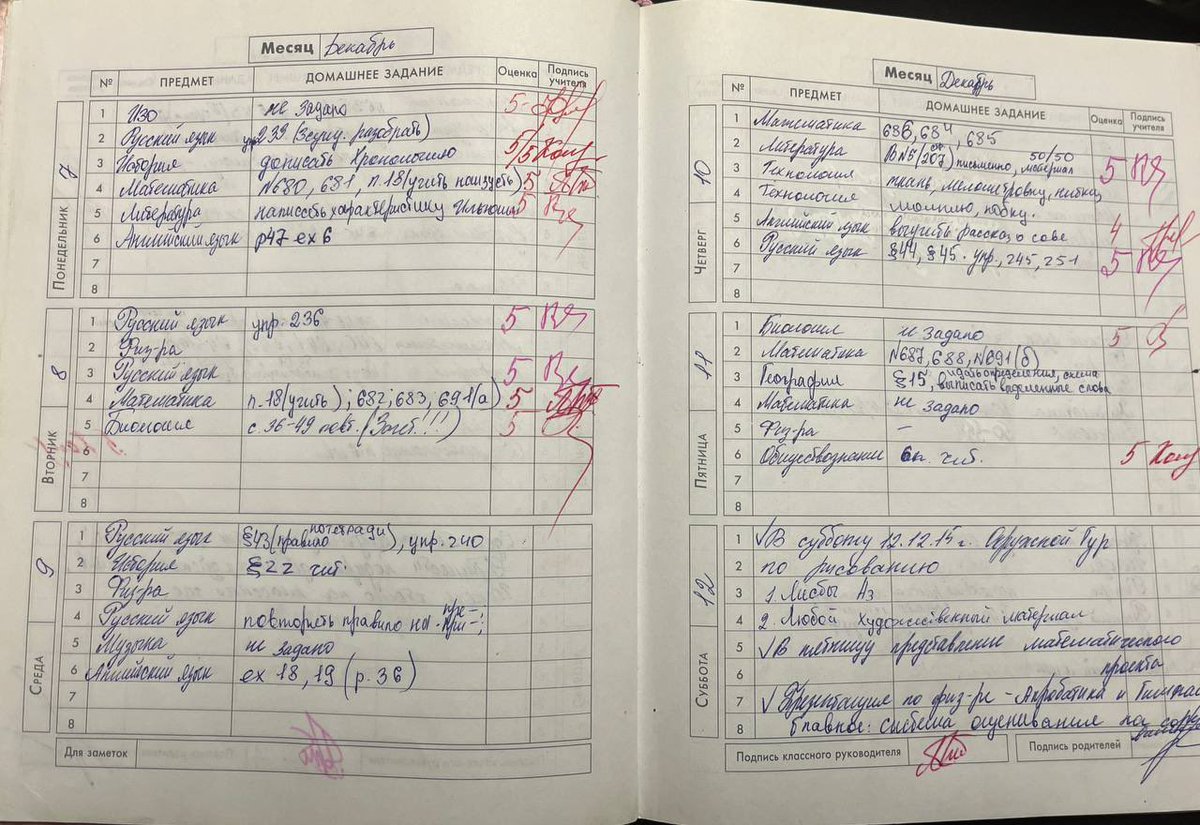 Месяц Декабрь
№ ПРЕДМЕТ ДОМАШНЕЕ ЗАДАНИЕ Оценка Подпись учителя
ПОНЕДЕЛЬНИК 7
1 ИЗО не задано 5
2 Русский язык упр 239 (разобрать)
3 История дописать Хронологию 5/5
4 Математика №680, 681, п.18 (учить наизусть) 5
5 Литература написать характеристику 5
6 Английский язык p47 ex 6
7
8
ВТОРНИК 8
1 Русский язык упр. 236 5
2 Физ-ра
3 Русский язык 5
4 Математика п.18 (учить); 682; 683, 691(а) 5
5 Биология с. 36-49 повт. (Зачёт!!!) 5
6
7
8
СРЕДА 9
1 Русский язык §43 (правило по тетради), упр. 240
2 История §22 чит.
3 Физ-ра
4 Русский язык повторить правило на пре-; при-;
5 Музыка не задано
6 Английский язык ex 18, 19 (p. 36)
7
8
Для заметок
Месяц Декабрь
№ ПРЕДМЕТ ДОМАШНЕЕ ЗАДАНИЕ Оценка Подпись учителя
ЧЕТВЕРГ 10
1 Математика 686, 684, 685
2 Литература В№5 (207) письменно, 50/50
3 Технология ткань, нитки, материал 5
4 Технология юбку.
5 Английский язык выучить рассказ о сове 4
6 Русский язык §44, §45. упр., 245, 251 5
7
8
ПЯТНИЦА 11
1 Биология не задано 5
2 Математика №687, 688, №691(б)
3 География §15, определения, схема выписать выделенные слова
4 Математика не задано
5 Физ-ра –
6 Обществознание чит. 5
7
8
СУББОТА 12
1 √ В субботу 12.12.15 г. Окружной Тур
2 по рисованию
3 1. Листы А3
4 2. Любой художественный материал
5 √ В пятницу представление математического
6 проекта
7 √ Презентация по физ-ре – Акробатика и
8 Главное: система оценивания по
Подпись классного руководителя Подпись родителей